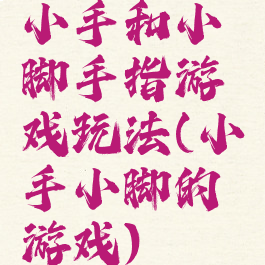 小手和小
脚手指游
戏玩法(小
手小脚的
游戏)